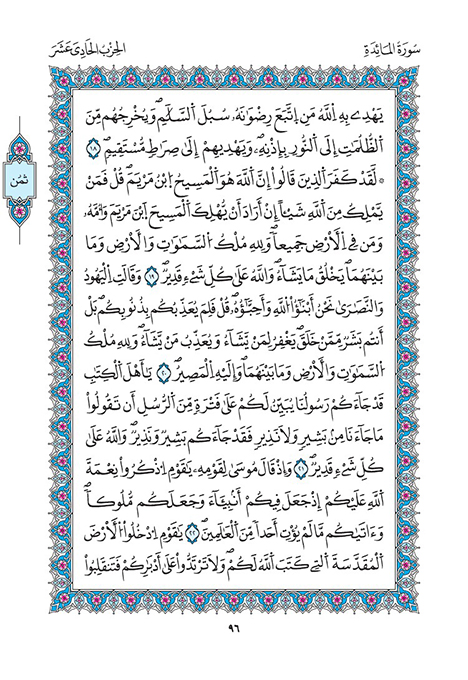 سورة المائدة
الحزب الحادي عشر
يَهْدِے بِهِ اِللَّهُ مَنِ اِتَّبَعَ رِضْوَٰنَهُۥ سُبُلَ اَلسَّلَٰمِۖ وَيُخْرِجُهُم مِّنَ
اَلظُّلُمَٰتِ إِلَى اَلنُّورِ بِإِذْنِهِۦۖ وَيَهْدِيهِمُۥٓ إِلَىٰ صِرَٰطٖ مُّسْتَقِيمٖۖ ١٨
۞ لَّقَدْ كَفَرَ اَلذِينَ قَالُوٓاْ إِنَّ اَللَّهَ هُوَ اَلْمَسِيحُ اُبْنُ مَرْيَمَۖ قُلْ فَمَنْ
يَّمْلِكُ مِنَ اَللَّهِ شَيْـٔاً اِنَ اَرَادَ أَنْ يُّهْلِكَ اَلْمَسِيحَ اَبْنَ مَرْيَمَ وَأُمَّهُۥ
وَمَن فِے اِلْأَرْضِ جَمِيعاٗۖ وَلِلهِ مُلْكُ اُلسَّمَٰوَٰتِ وَالْأَرْضِ وَمَا
بَيْنَهُمَاۖ يَخْلُقُ مَا يَشَآءُۖ وَاللَّهُ عَلَىٰ كُلِّ شَےْءٖ قَدِيرٞۖ ١٩ وَقَالَتِ اِلْيَهُودُ
وَالنَّصَٰرَىٰ نَحْنُ أَبْنَٰٓؤُاْ اُللَّهِ وَأَحِبَّٰٓؤُهُۥۖ قُلْ فَلِمَ يُعَذِّبُكُم بِذُنُوبِكُمۖ بَلَ
اَنتُم بَشَرٞ مِّمَّنْ خَلَقَۖ يَغْفِرُ لِمَنْ يَّشَآءُ وَيُعَذِّبُ مَنْ يَّشَآءُۖ وَلِلهِ مُلْكُ
اُلسَّمَٰوَٰتِ وَالْأَرْضِ وَمَا بَيْنَهُمَاۖ وَإِلَيْهِ اِلْمَصِيرُۖ ٢٠ يَٰٓأَهْلَ اَلْكِتَٰبِ
قَدْ جَآءَكُمْ رَسُولُنَا يُبَيِّنُ لَكُمْ عَلَىٰ فَتْرَةٖ مِّنَ اَلرُّسُلِ أَن تَقُولُواْ
مَا جَآءَنَا مِنۢ بَشِيرٖ وَلَا نَذِيرٖۖ فَقَدْ جَآءَكُم بَشِيرٞ وَنَذِيرٞۖ وَاللَّهُ عَلَىٰ
كُلِّ شَےْءٖ قَدِيرٞۖ ٢١ وَإِذْ قَالَ مُوسَىٰ لِقَوْمِهِۦ يَٰقَوْمِ اِذْكُرُواْ نِعْمَةَ
اَللَّهِ عَلَيْكُمُۥٓ إِذْ جَعَلَ فِيكُمُۥٓ أَنۢبِئَآءَ وَجَعَلَكُم مُّلُوكاٗۖ
وَءَاتَىٰكُم مَّا لَمْ يُؤْتِ أَحَداٗ مِّنَ اَلْعَٰلَمِينَۖ ٢٢ يَٰقَوْمِ اِدْخُلُواْ اُلْأَرْضَ
اَلْمُقَدَّسَةَ اَلتِے كَتَبَ اَللَّهُ لَكُمْۖ وَلَا تَرْتَدُّواْ عَلَىٰٓ أَدْبٰ۪رِكُمْ فَتَنقَلِبُواْ
ثمن
٩٦